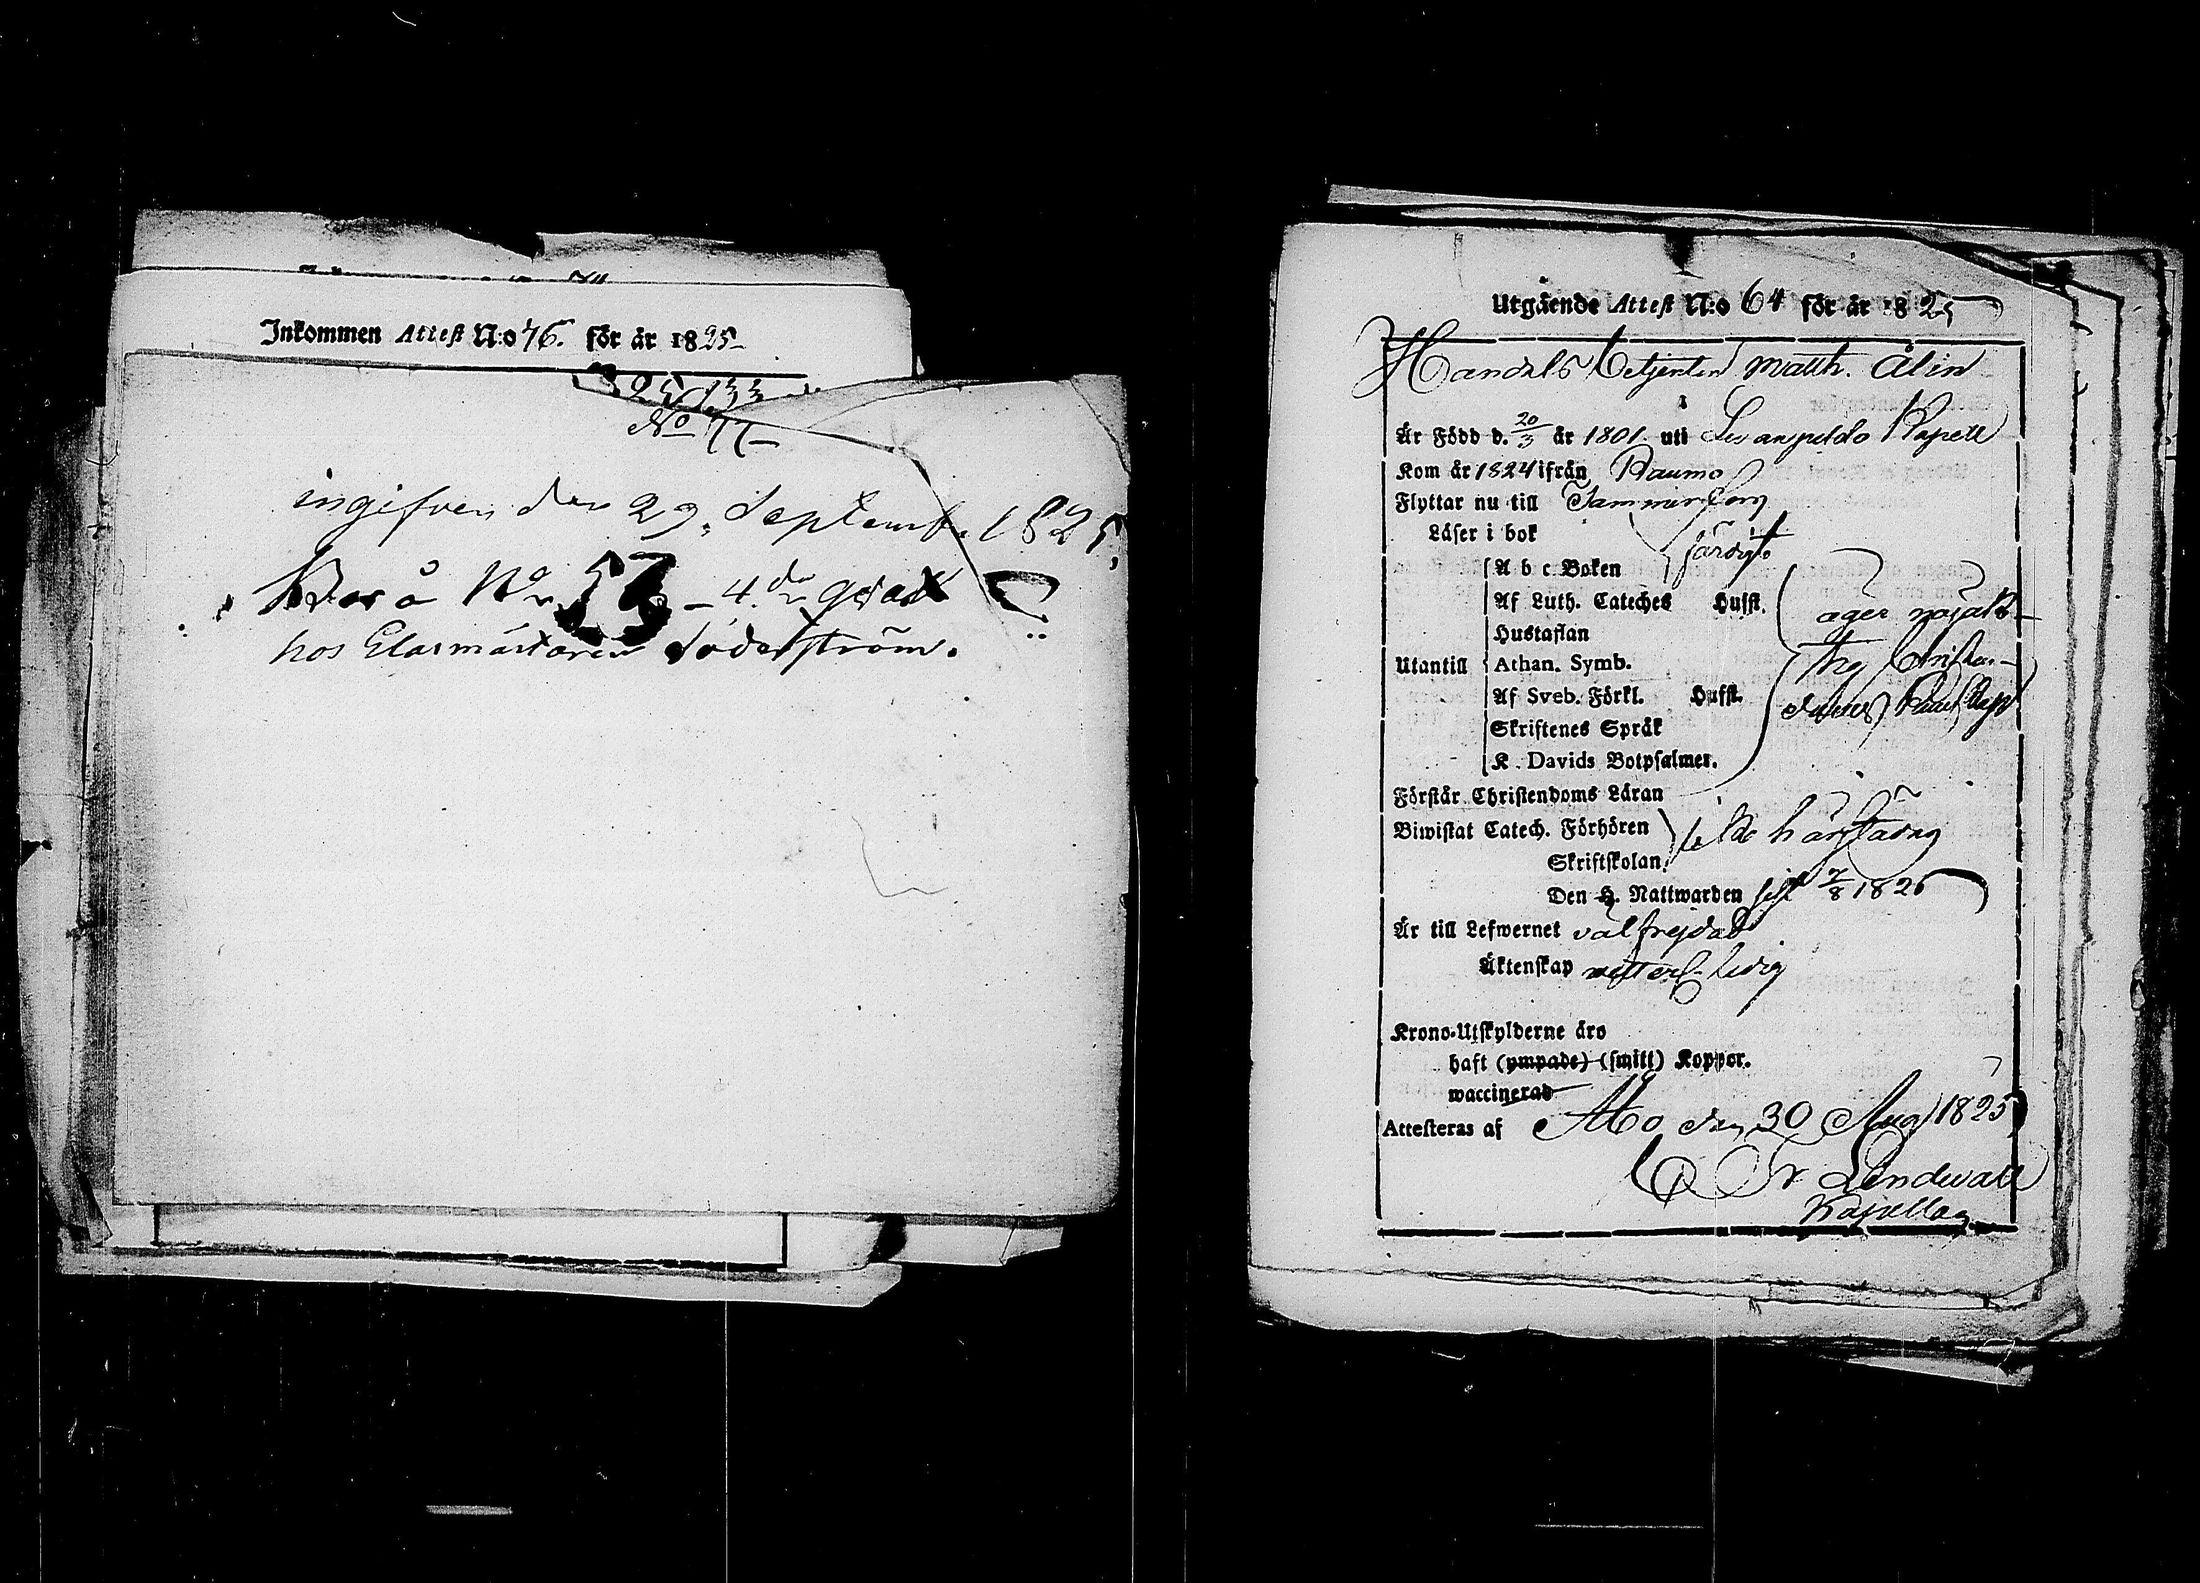 Inkommen Attest N:o 76. för år 1825
No 77
ingifven den 29. Septemb. 1825.
Bor å No 53 – 4.de qvart
hos Glasmästaren Söderström.
Utgående Attest N:o 64 för år 1825
Handels betjenten Matth. Ålin
Är Född d. 20/3 år 1801. uti Kapell
Kom år 1824 ifrån Raumo
Flyttar nu till Tammerfors
Läser i bok färdigt
A b c Boken
Af Luth. Cateches Hufft. äger nöjakt-
Hustaflan
Utantill Athan. Symb. lig Christen-
Af Sveb. Förkl. Hufft. doms kunskap
Skriftenes Språk
K. Davids Botpsalmer.
Förstår Christendoms Läran
Biwistat Catech. Förhören
Skriftskolan.
Den H. Nattwarden sist 7/8 1825
Är till Lefwernet välfrejdad
Äktenskap ledig
Krono-Utskylderne äro
haft (ympade) (smitt) Koppor.
waccinerad
Attesteras af Åbo den 30 Aug 1825
Fr Lindwall
Kapellag